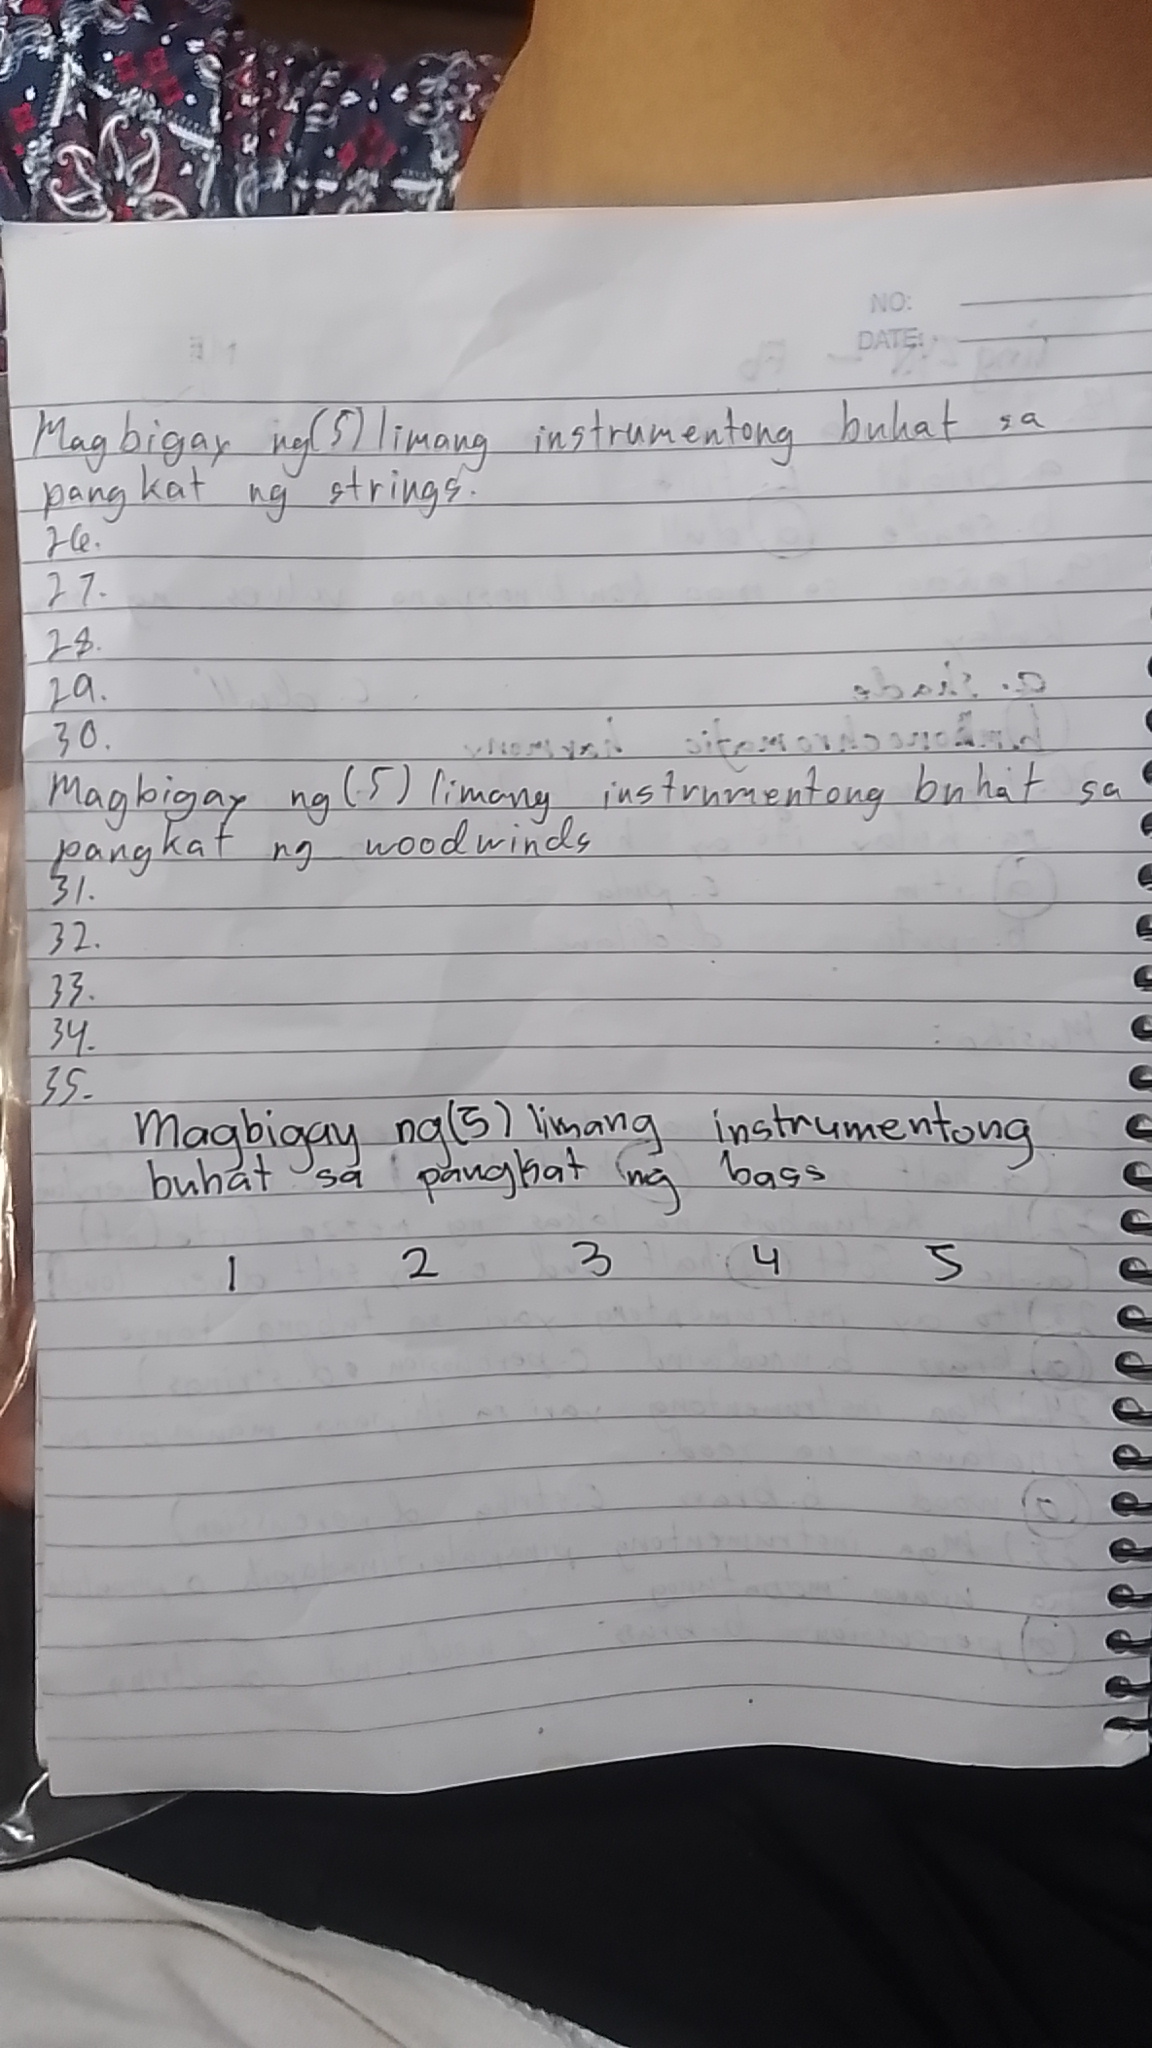 NO:
DATE:
Magbigay ng(5) limang instrumentong buhat sa
pangkat ng strings.
26.
27.
28.
29.
30.
Magbigay ng (5) limang instrumentong buhat sa
pangkat ng woodwinds
31.
32.
33.
34.
35.
Magbigay ng(5) limang instrumentong
buhat sa pangkat ng bass
1 2 3 4 5